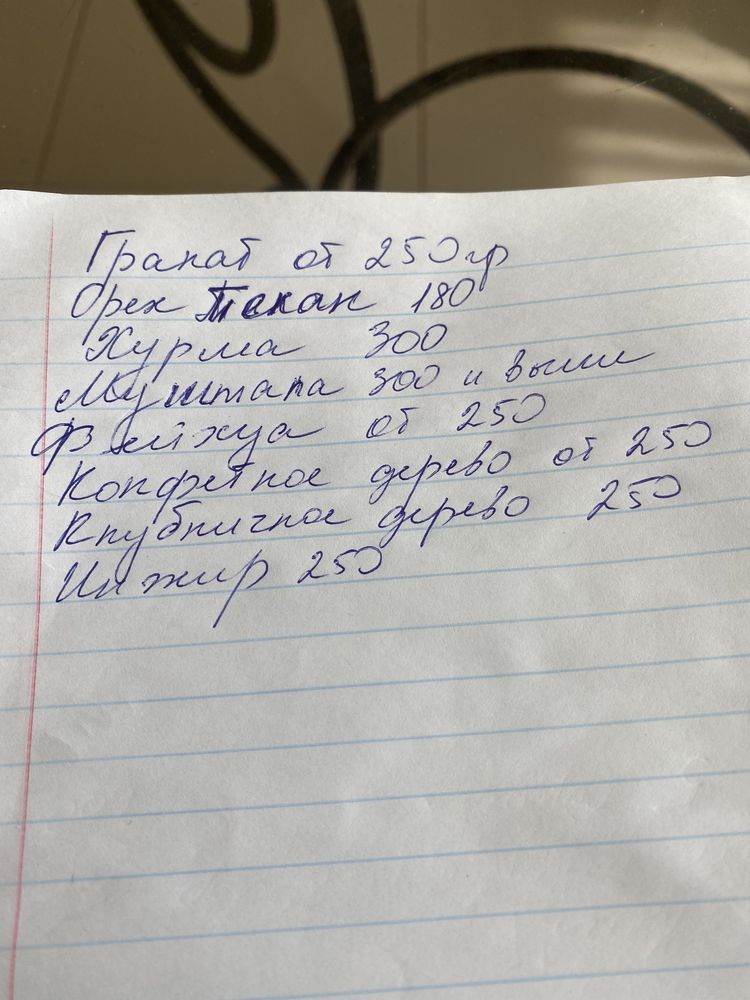 Гранат от 250 гр
Орех Пекан 180
Хурма 300
Мушмала 300 и выше
Фейхуа от 250
Конфетное дерево от 250
Клубничное дерево 250
Инжир 250